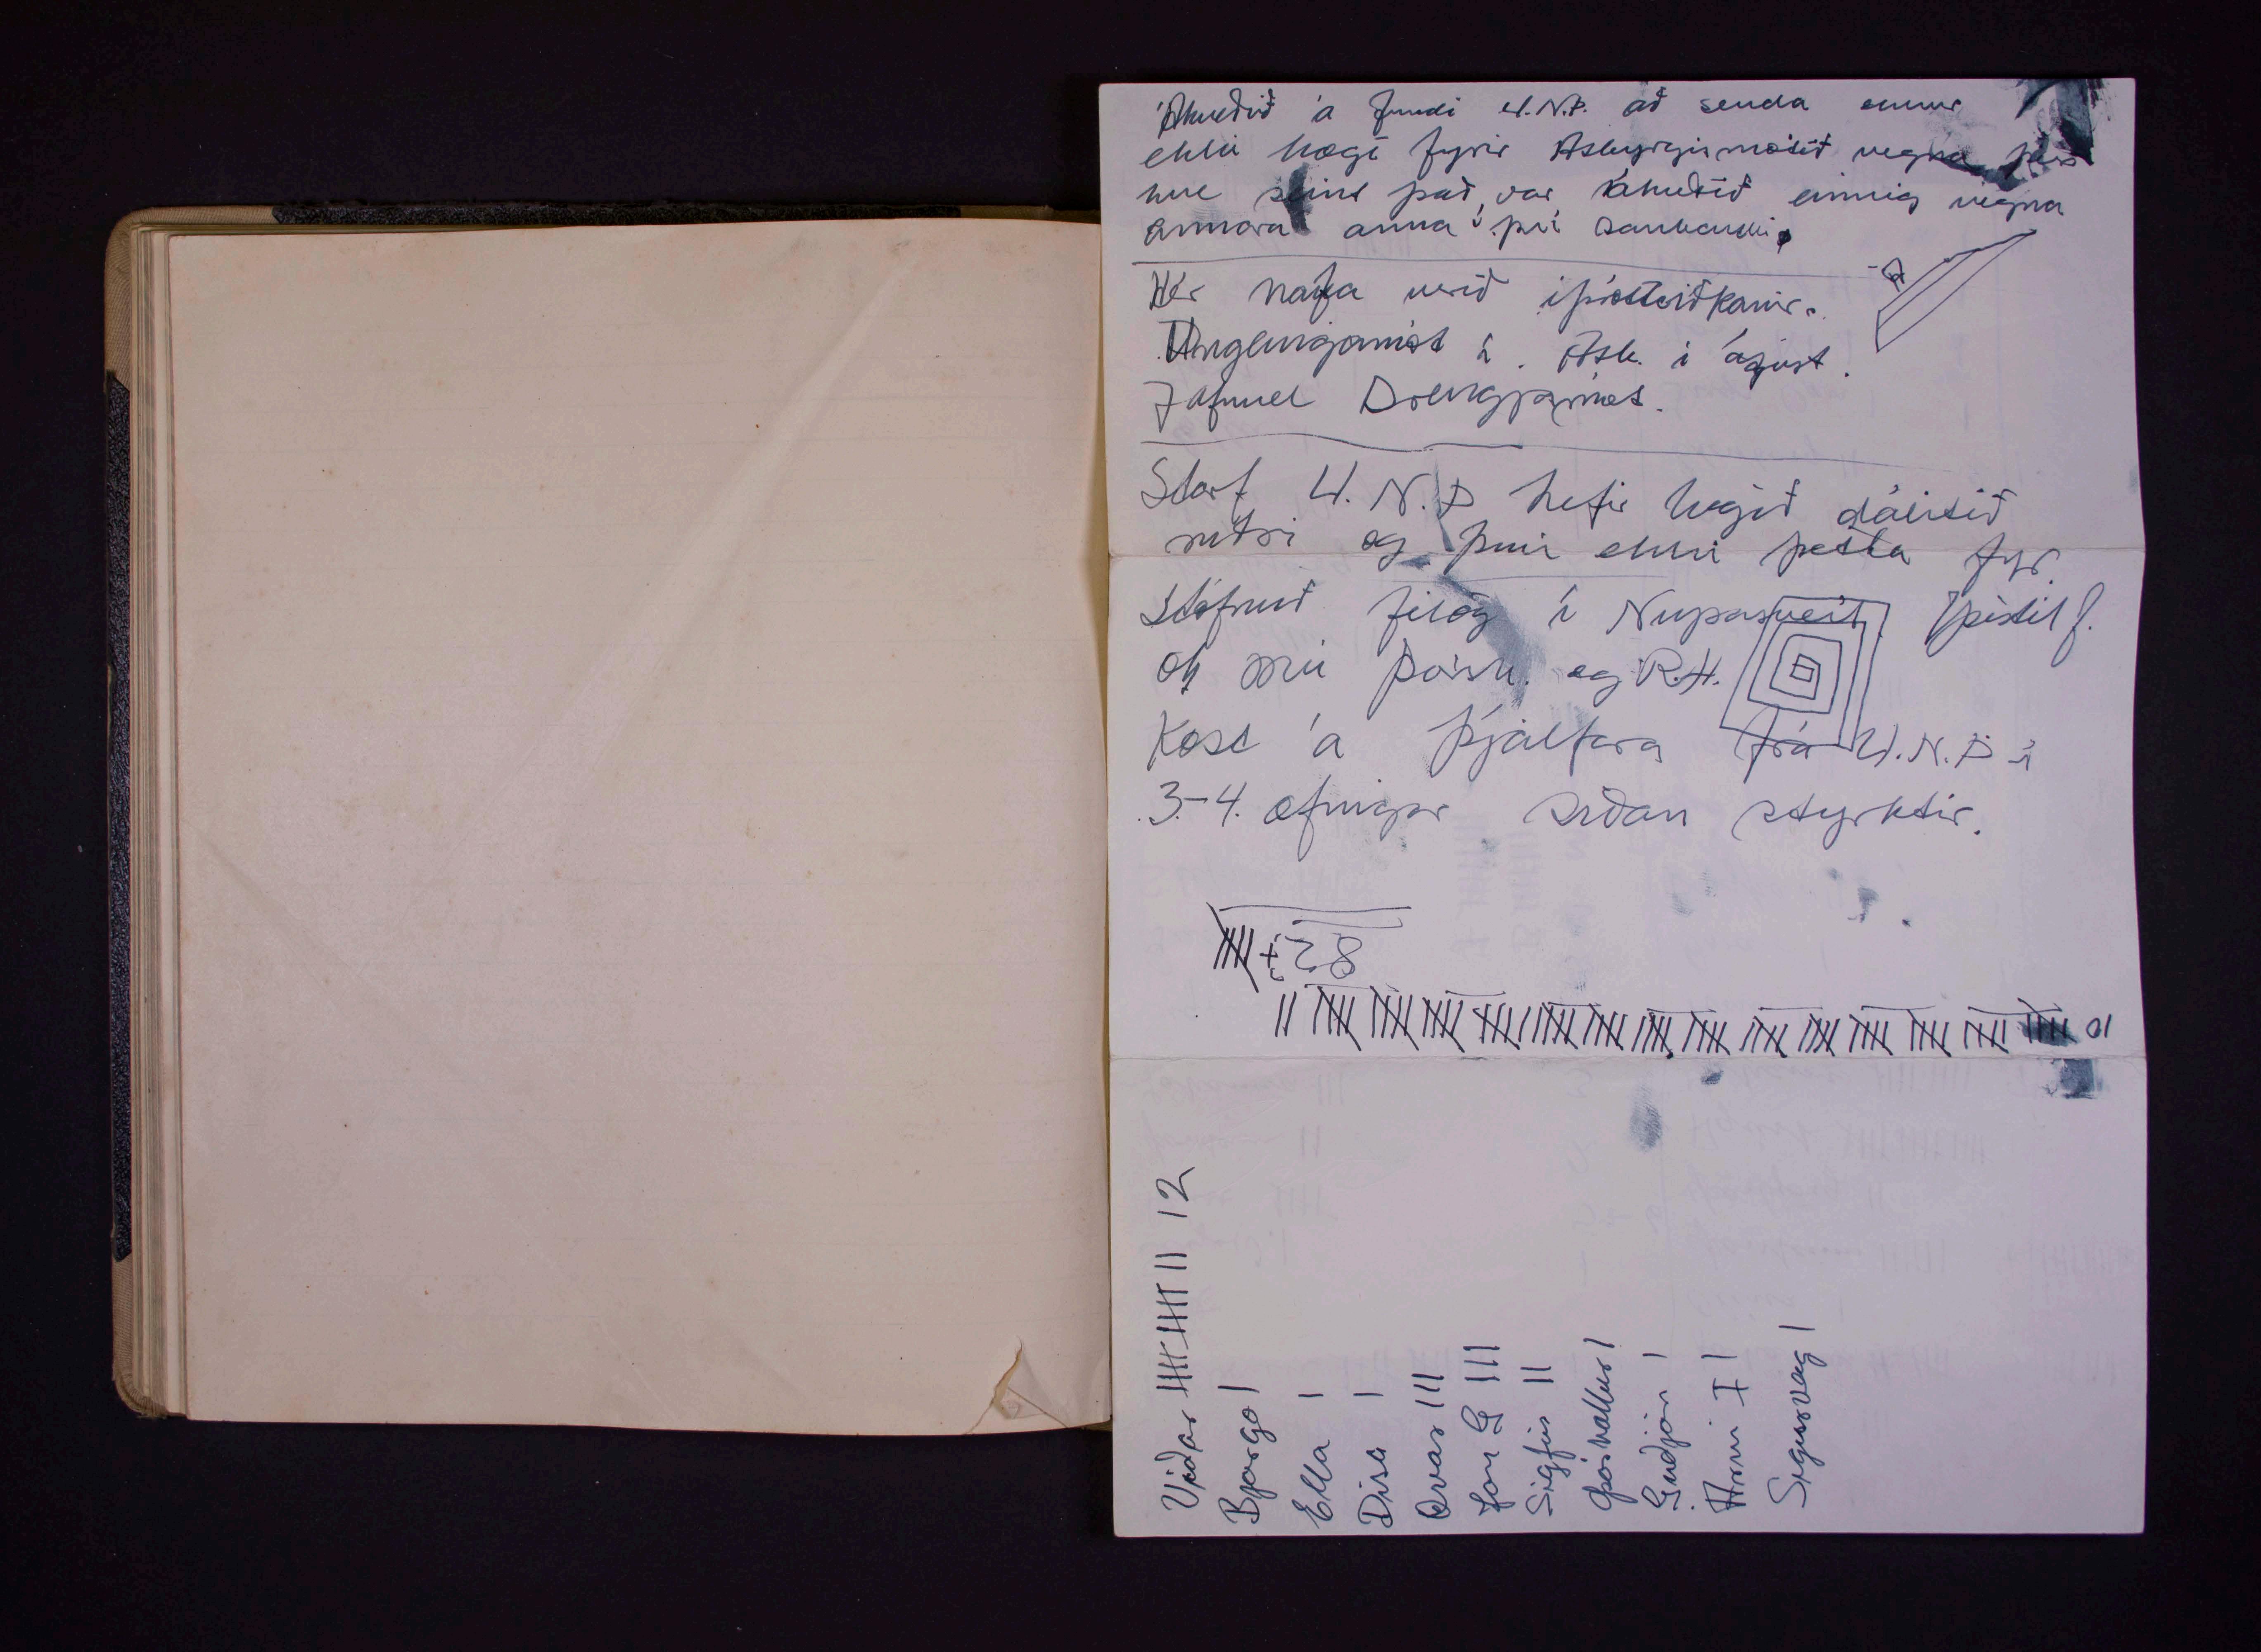 Ákveðið á fundi U.N.Þ. að senda
ekki hægt fyrir Ásbyrgismótið vegna þess
hve seint það var ákveðið einnig vegna
annara anna í því sambandi.
Hér hafa verið íþróttaiðkanir.
Unglingamót á Ásb. í ágúst.
Jafnvel Drengjamót.
Starf U.N.Þ hefir legið dálítið
niðri og því ekki þessa fyr.
Stofnuð félög í Núpasveit Þistilf.
og nú Þórsh. og R.H.
Kost á þjálfara frá U.N.Þ í
3-4. æfingar síðan styrktir.
28
Viðar |||| |||| || 12
Bjargó |
Ella |
Dísa |
Qvar |||
Jón G |||
Sigfús ||
Þórhallur |
Guðjón |
Árni I |
Sigurveig |